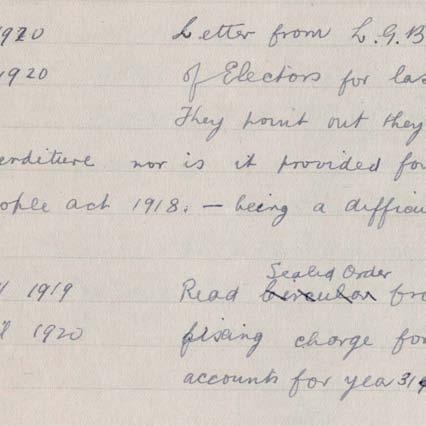 1920 Letter from L.G.B
1920 of Electors for las
They point out they
erditure nor is it provided for
ople act 1918. — being a difficu
Sealed Order
1919 Read circular fro
1920 fixing charge for
accounts for year 31